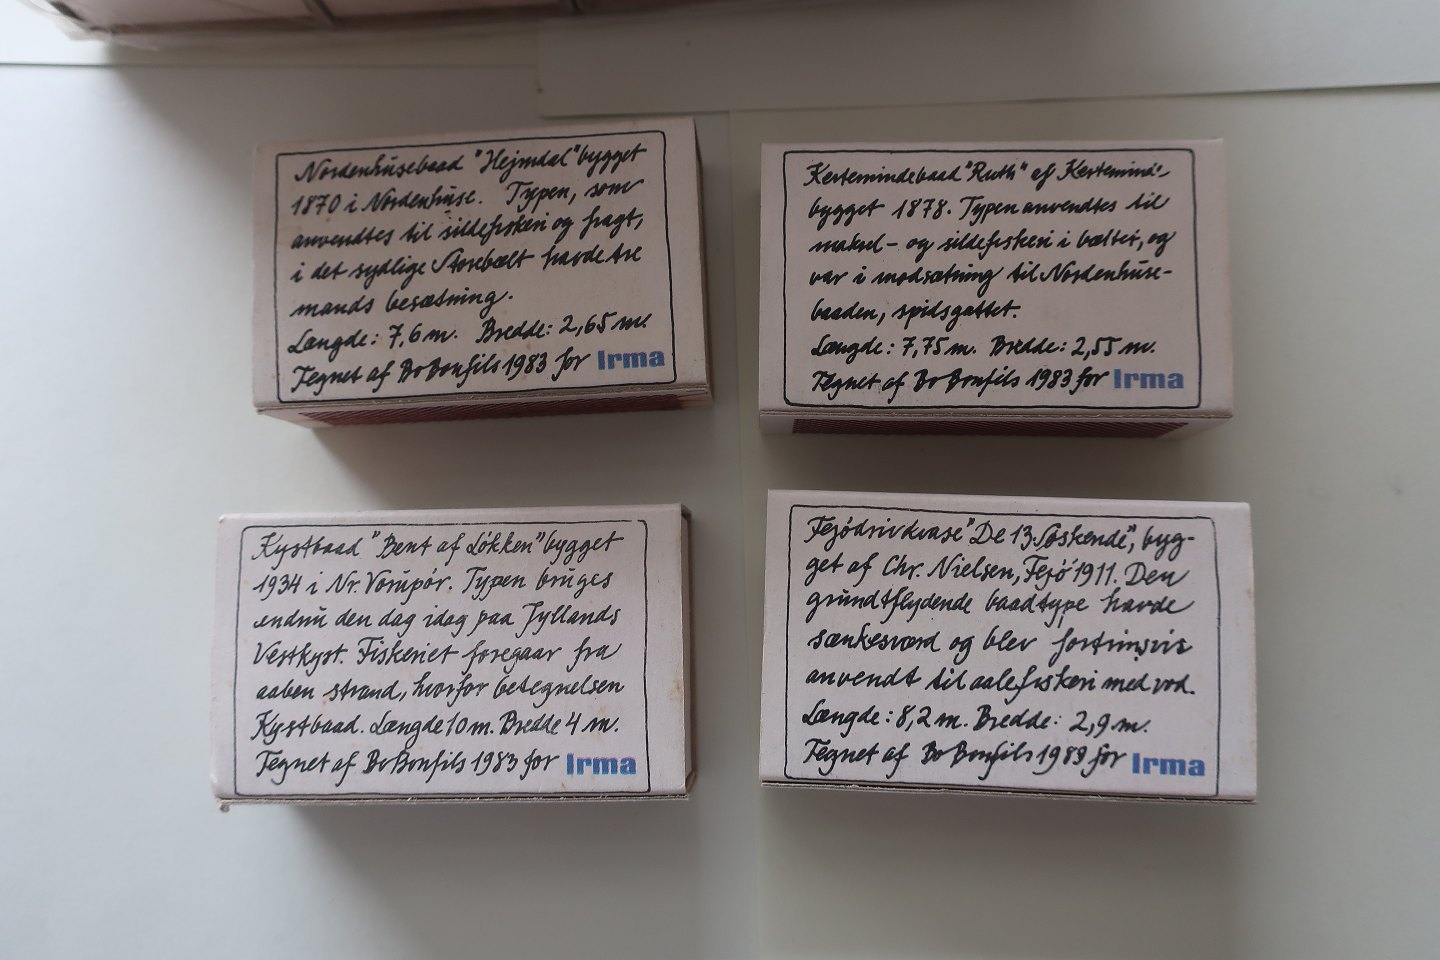 Nordenhusebaad "Hejmdal" bygget
1870 i Nordenhuse. Typen, som
anvendtes til sildefiskeri og fragt,
i det sydlige Storebælt havde tre
mands besætning.
Længde: 7,6 m. Bredde: 2,65 m.
Tegnet af Bo Bonfils 1983 for Irma
Kertemindebaad "Ruth" af Kerteminde
bygget 1878. Typen anvendtes til
makrel- og sildefiskeri i bæltet, og
var i modsætning til Nordenhuse-
baaden, spidsgattet.
Længde: 7,75 m. Bredde: 2,55 m.
Tegnet af Bo Bonfils 1983 for Irma
Kystbaad "Bent af Løkken" bygget
1934 i Nr. Vorupør. Typen bruges
endnu den dag idag paa Jyllands
Vestkyst. Fiskeriet foregaar fra
aaben strand, hvorfor betegnelsen
Kystbaad. Længde 10 m. Bredde 4 m.
Tegnet af Bo Bonfils 1983 for Irma
Fejødrivkvase "De 13 Søskende", byg-
get af Chr. Nielsen, Fejø 1911. Den
grundtflydende baadtype havde
sænkesværd og blev fortrinsvis
anvendt til aalefiskeri med vod.
Længde: 8,2 m. Bredde: 2,9 m.
Tegnet af Bo Bonfils 1983 for Irma